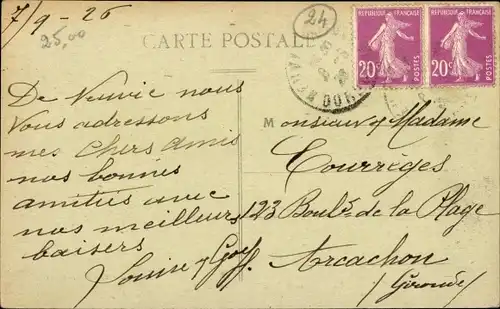 7/9-26
25,00
24
CARTE POSTALE
REPUBLIQUE FRANÇAISE
20c
POSTES
REPUBLIQUE FRANÇAISE
20c
POSTES
De Neuvic nous
Vous adressons
mes chers amis
nos bonnes
amitiés avec
nos meilleurs
baisers
Louise
Monsieur & Madame
Courrèges
123 Boulé de la Plage
Arcachon
(Gironde)